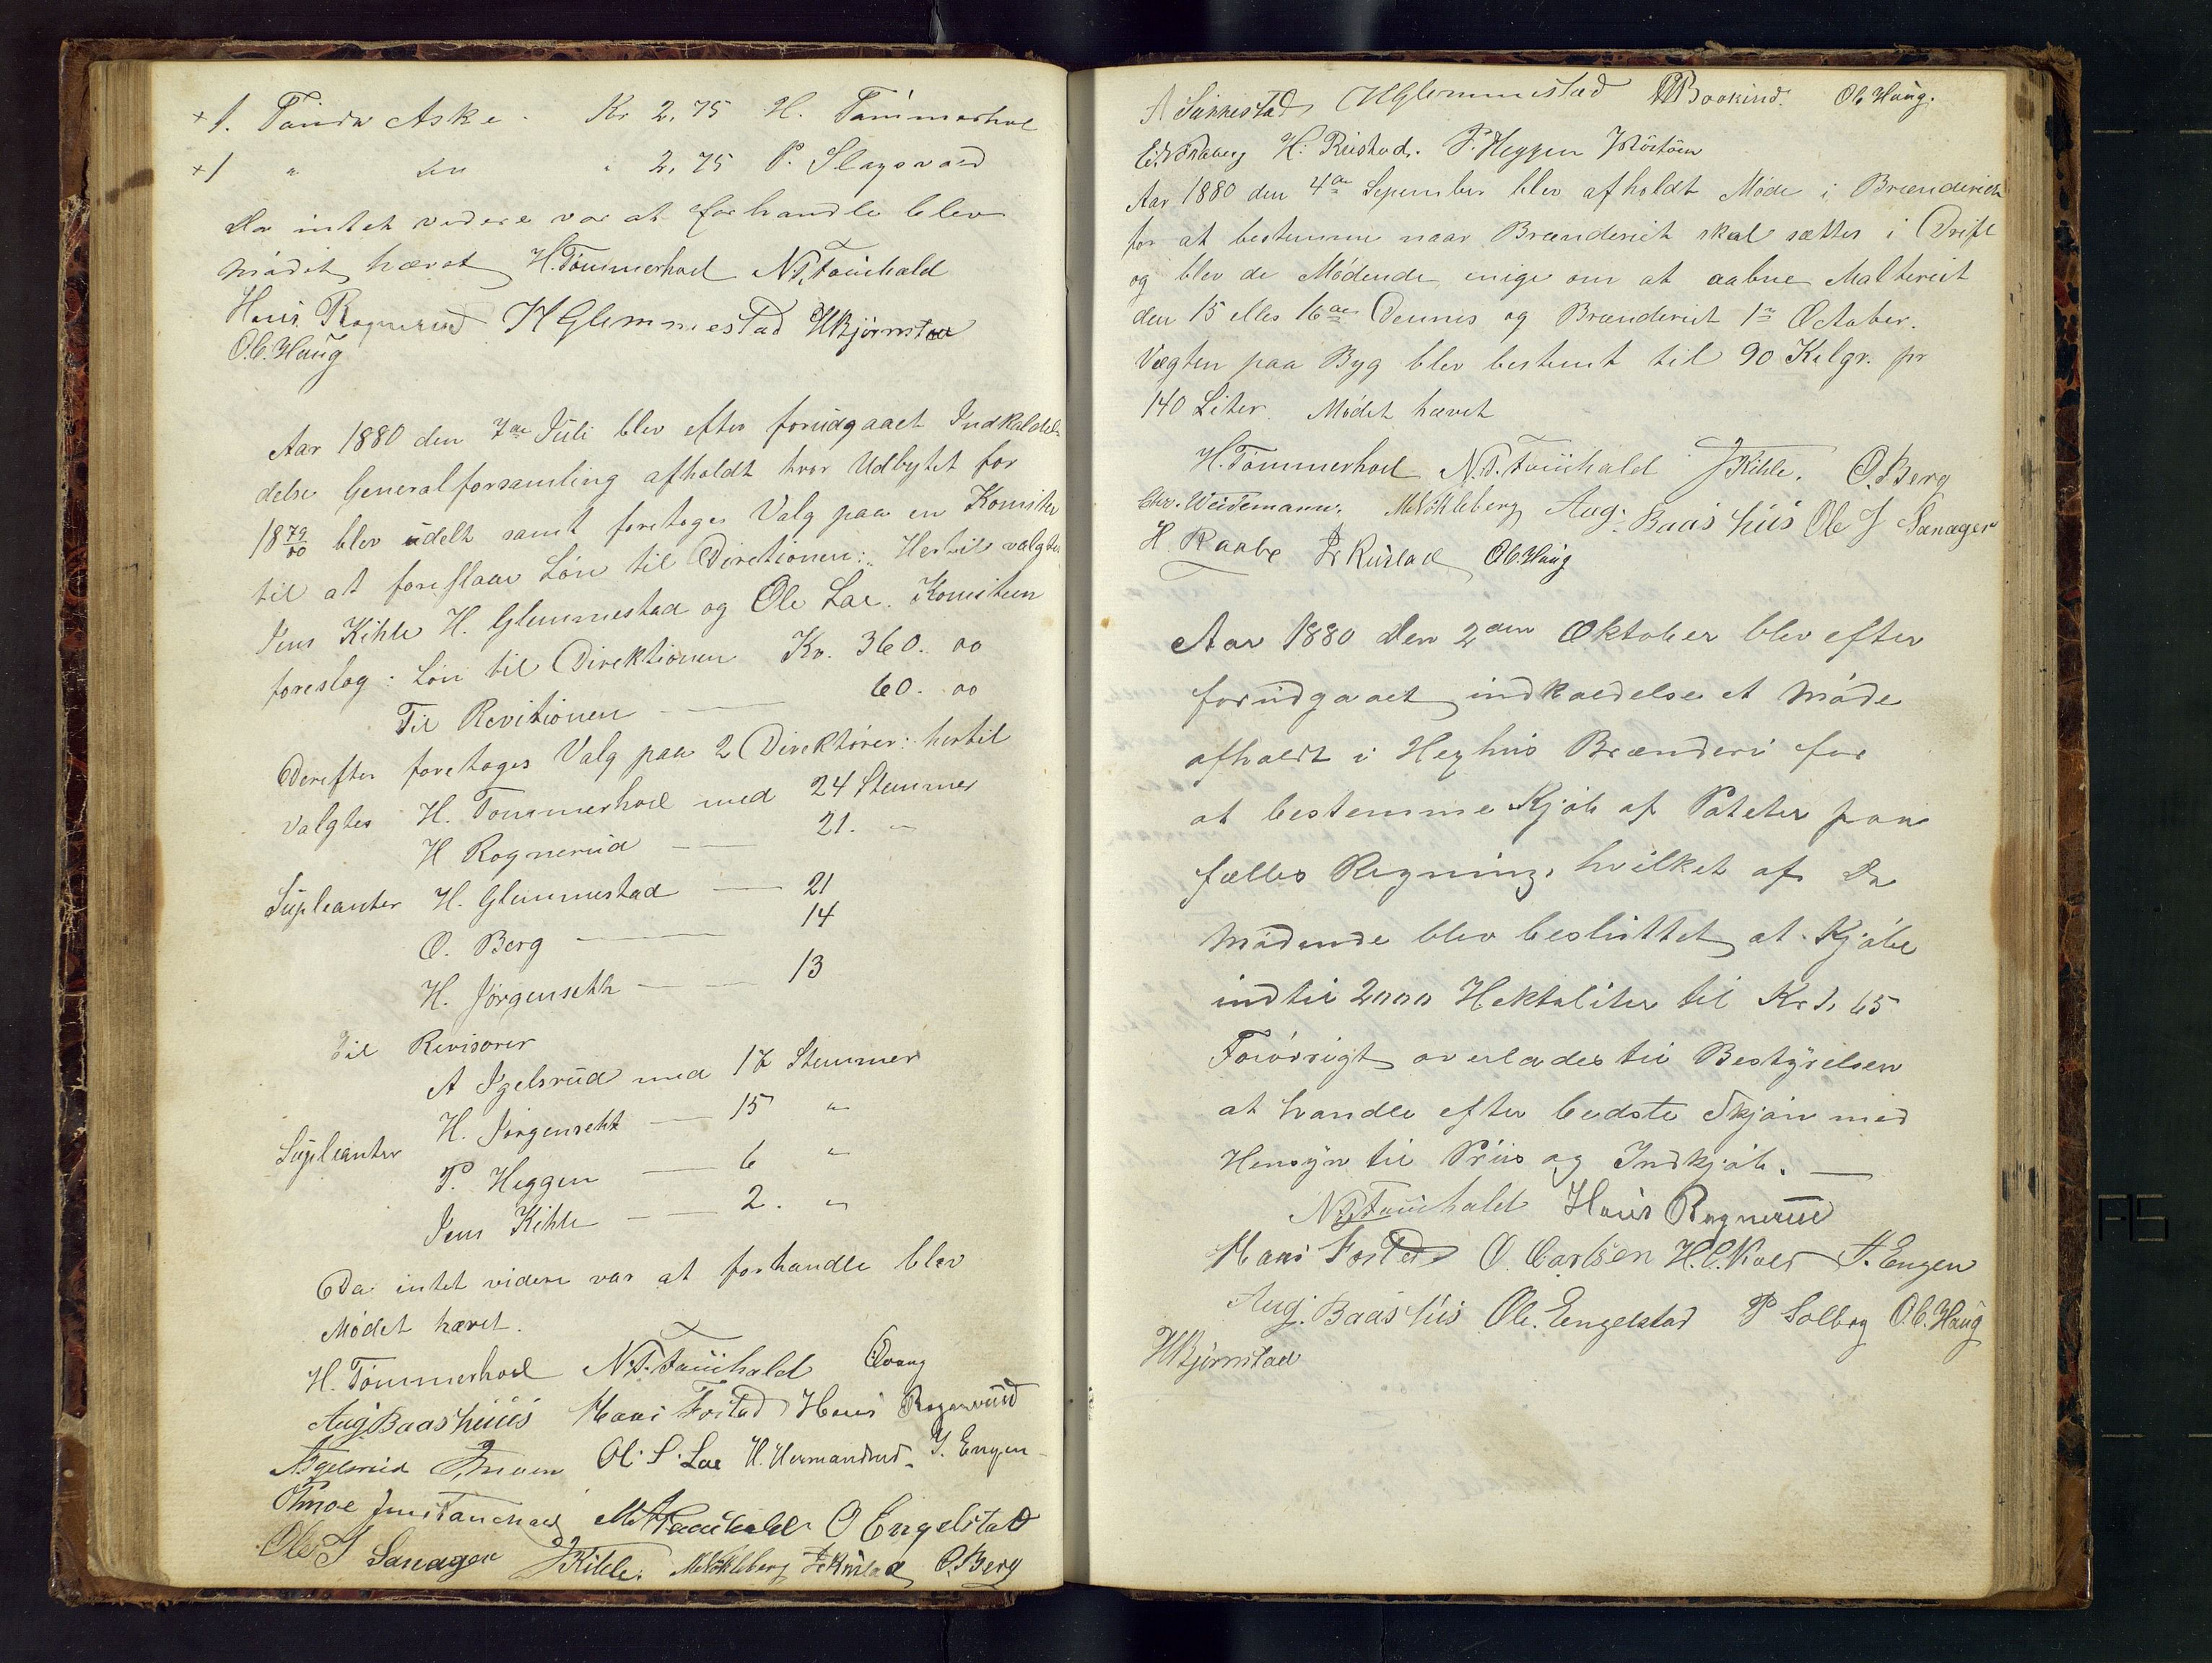 +1. Tønde Aske. Kr 2,75 H. Tømmerhol
+1 " do " 2,75 P. Slagsvold
Da intet videre var at forhandle blev
mødet hævet H. Tømmerhoel N. T. Fauchald
Hans Rognerud H Glemmestad H Bjørnstad
O.C. Haug
Aar 1880 den 7de Juli blev efter forudgaaet Indkaldel-
delse Generalforsamling afholdt hvor Udbytet for
1879/80 blev udelt samt foretoges Valg paa en Komitee
til at foreslaae Løn til Direktionen: Hertil valgtes
Jens Kihle H. Glemmestad og Ole Loe. Komiteen
foreslog: Løn til Direktionen Kr. 360. 00
Til Revitionen — 60. 00
Derefter foretoges Valg paa 2 Direktører: hertil
valgtes H. Tommerhoel med 24 Stemmer
H Rognerud — 21. "
Supleanter H. Glemmestad — 21
O. Berg — 14
H. Jørgenseth — 13
Til Revisorer
A Igelsrud med 17 Stemmer
H. Jørgenseth — 15 "
Supleanter P. Heggen — 6 "
Jens Kihle — 2. "
Da intet videre var at forhandle blev
Mødet hævet.
H. Tømmerhoel N. T. Fauchald
Aug Baashuus Hans Fostad Hans Rognerud
A Igelsrud Ole S. Loe H. Hermandrud. J. Engen
Fauchald O Engelstad
Ole J Sanager J Kihle. M. Økleberg O. Berg
A Sukkestad H Glemmestad Ole Haug.
H. Rustad. P. Heggen
Aar 1880 den 4de Sepember blev afholdt Møde i Brænderiet
for at bestemme naar Brænderiet skal sættes i Drift
og blev de Mødende enige om at aabne Malteriet
den 15 elles 16de Dennes og Brænderiet 1ste October.
Vægten paa Byg blev bestemt til 90 Kilgr. pr
140 Liter. Mødet hævet
H. Tømmerhoel N. T. Fauchald J Kihle. O. Berg
Chr. Weidemann. M. Økleberg Aug. Baashuus Ole J Sanager
H. Raabe O.C. Haug
Aar 1880 den 2den Oktober blev efter
forudgaaet indkaldelse et Møde
afholdt i Heghus Brænderi for
at bestemme Kjøb af Poteter paa
fælles Regning, hvilket af De
Mødende blev besluttet at Kjøbe
indtil 2000 Hektoliter til Kr 1,65
Forøvrigt overlades til Bestyrelsen
at handle efter bedste Skjøn med
Hensyn til Priis og Indkjøb. —
N T Fauchald Hans Rognerud
Hans Fostad O. Carlsen H. C. Kolds J. Engen
Aug. Baashuus Ole. Engelstad P Solberg O.C. Haug
H Bjørnstad